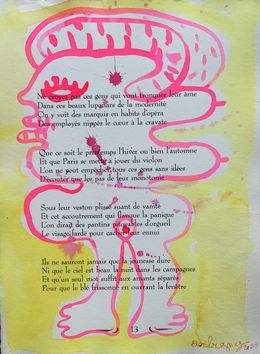 Ne croyez pas ces gens qui vont tronquer leur âme
Dans ces beaux lupanars de la modernité
On y voit des marquis en habits d'opéra
Des employés nippés le cœur à la cravate
Que ce soit le printemps l'hiver ou bien l'automne
Et que Paris se mette à jouer du violon
L'on ne peut empêcher tous ces gens sans idées
D'écouter que les pas de leur monotonie
Sous leur veston plissé suant de vanité
Et cet accoutrement qui flanque la panique
L'on dirait des pantins pitoyables d'orgueil
Le visage fardé pour cacher leur ennui
Ils ne sauront jamais que la jeunesse dure
Ni que le ciel est beau la nuit dans les campagnes
Et qu'un seul mot suffit aux amants séparés
Pour que le blé frissonne en ouvrant la fenêtre
13